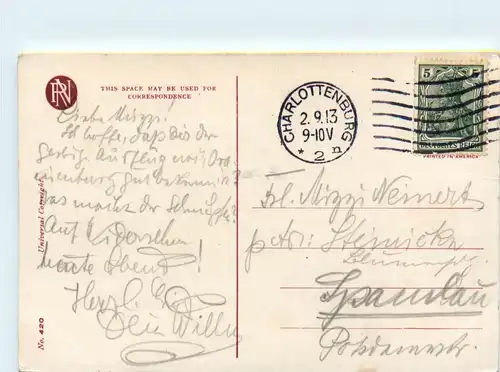 RN
THIS SPACE MAY BE USED FOR
CORRESPONDENCE
CHARLOTTENBURG
2.9.13
9-10V
* 2 n
5 5
DEUTSCHES REICH
PRINTED IN AMERICA
Liebe Mizzi!
Ich hoffe, daß Dir der
gestrige Ausflug nach Ora-
nienburg gut bekommen?
Was macht der Schnupfen?
Auf Wiedersehen
heute Abend!
Herzl.
Dein Willy
Frl. Mizzi Neinert
Steinicke
Spandau
Potsdamerstr.
Universal Copyright
No. 420